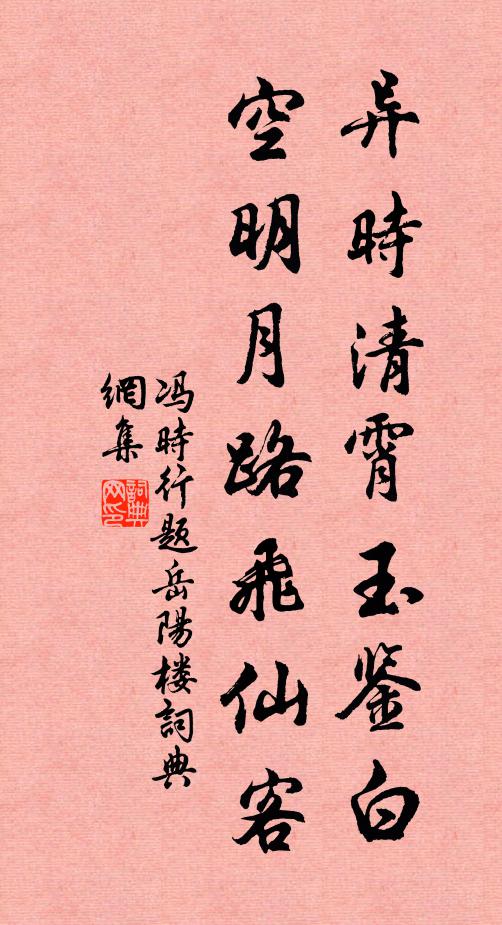 异時清霄玉鉴白
空明月路飛仙客
冯時行题岳陽楼詞典
網集
詞典
网印